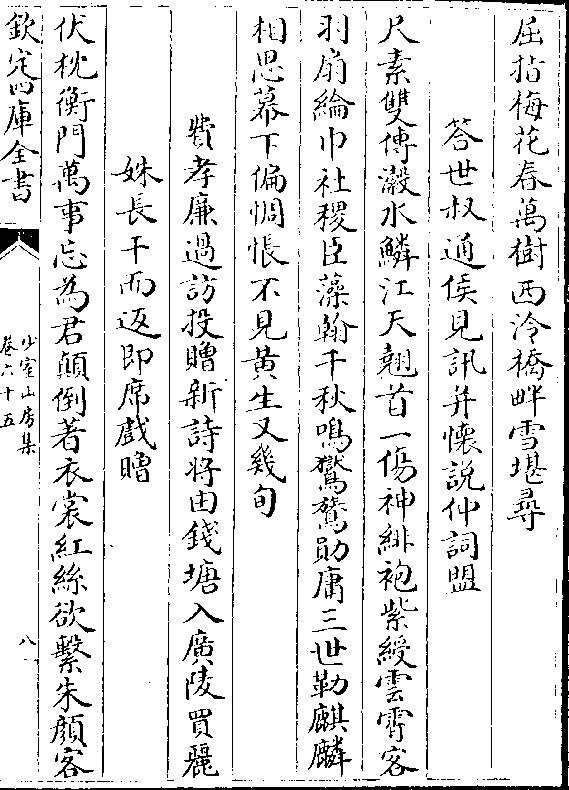 屈指梅花春萬樹西泠橋畔雪堪尋
答世叔通侯見訊并懷說仲詞盟
尺素雙傳瀔水鱗江天翹首一傷神緋袍紫綬雲霄客
羽扇綸巾社稷臣藻翰千秋鳴鸑鷟勛庸三世勒麒麟
相思幕下偏惆悵不見黃生又幾旬
費孝廉過訪投贈新詩將由錢塘入廣陵買麗
姝長干而返即席戲贈
伏枕衡門萬事忘為君顛倒著衣裳紅絲欲繫朱顏客
欽定四庫全書
少室山房集
卷六十五
八